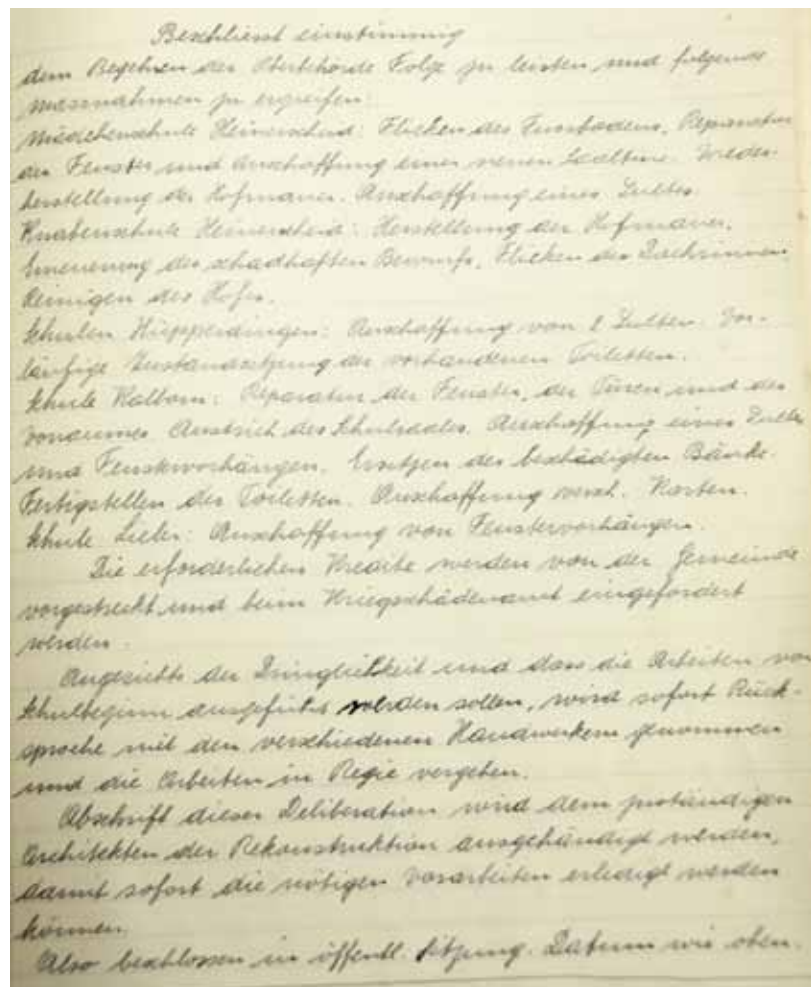 Beschliesst einstimmig
dem Begehren der Oberbehörde Folge zu leisten und folgende
Massnahmen zu ergreifen:
Mädchenschule Heinerscheid: Flicken des Fussbodens, Reparatur
der Fenster und Anschaffung einer neuen Saaltüre. Wieder-
herstellung der Hofmauer. Anschaffung eines Pultes.
Knabenschule Heinerscheid: Herstellung der Hofmauer,
Erneuerung des schadhaften Bewurfs, Flicken der Dachrinnen
Reinigen des Hofes.
Schulen Hüpperdingen: Anschaffung von 2 Pulten. Vor-
läufige Instandsetzung der vorhandenen Toiletten.
Schule Kalborn: Reparatur der Fenster, der Türen und des
Vorraumes. Anstrich des Schulsaales. Anschaffung eines Pultes
und Fenstervorhängen. Ersetzen der beschädigten Bänke.
Fertigstellen der Toiletten. Anschaffung versch. Karten.
Schule Lieler: Anschaffung von Fenstervorhängen.
Die erforderlichen Kredite werden von der Gemeinde
vorgestreckt und beim Kriegschädenamt eingefordert
werden.
Angesichts der Dringlichkeit und dass die Arbeiten vor
Schulbeginn ausgeführt werden sollen, wird sofort Rück-
sprache mit den verschiedenen Handwerkern genommen
und die Arbeiten in Regie vergeben.
Abschrift dieser Deliberation wird dem zuständigen
Architekten der Rekonstruktion ausgehändigt werden,
damit sofort die nötigen Vorarbeiten erledigt werden
können.
Also beschlossen in öffentl. Sitzung. Datum wie oben.